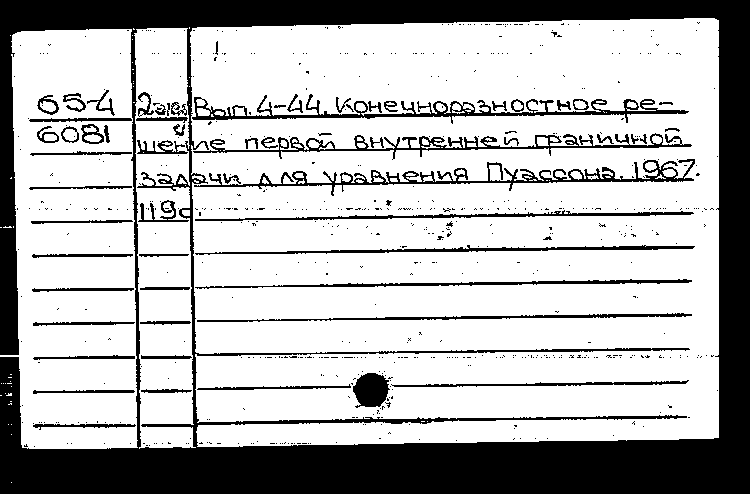 65-4 2экз Вып. 4-44. Конечноразностное ре-
6081 шение первой внутренней граничной
задачи для уравнения Пуассона. 1967.
119с.